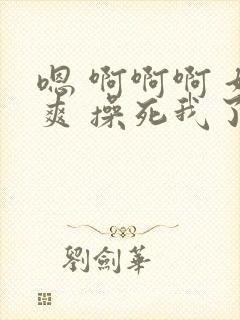 嗯 啊啊啊
爽 操死我了
劉劍華